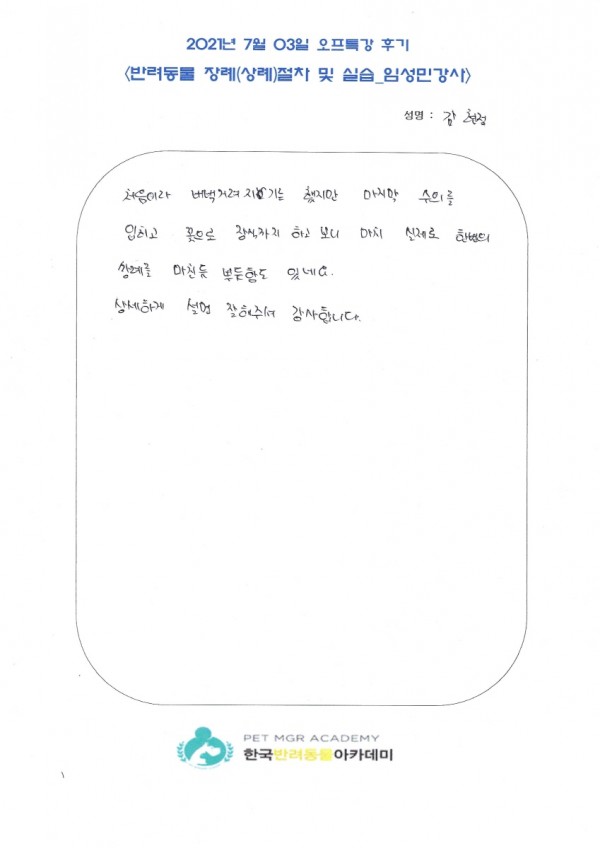 2021년 7월 03일 오프특강 후기
<반려동물 장례(상례)절차 및 실습_임성민강사>
성명 : 김 현정
처음이라 버벅거려지기는 했지만 마지막 수의를
입히고 꽃으로 장식까지 하고 보니 마치 실제로 한번의
장례를 마친듯 뿌듯함도 있네요.
상세하게 설명 잘해주셔 감사합니다.
PET MGR ACADEMY
한국반려동물아카데미